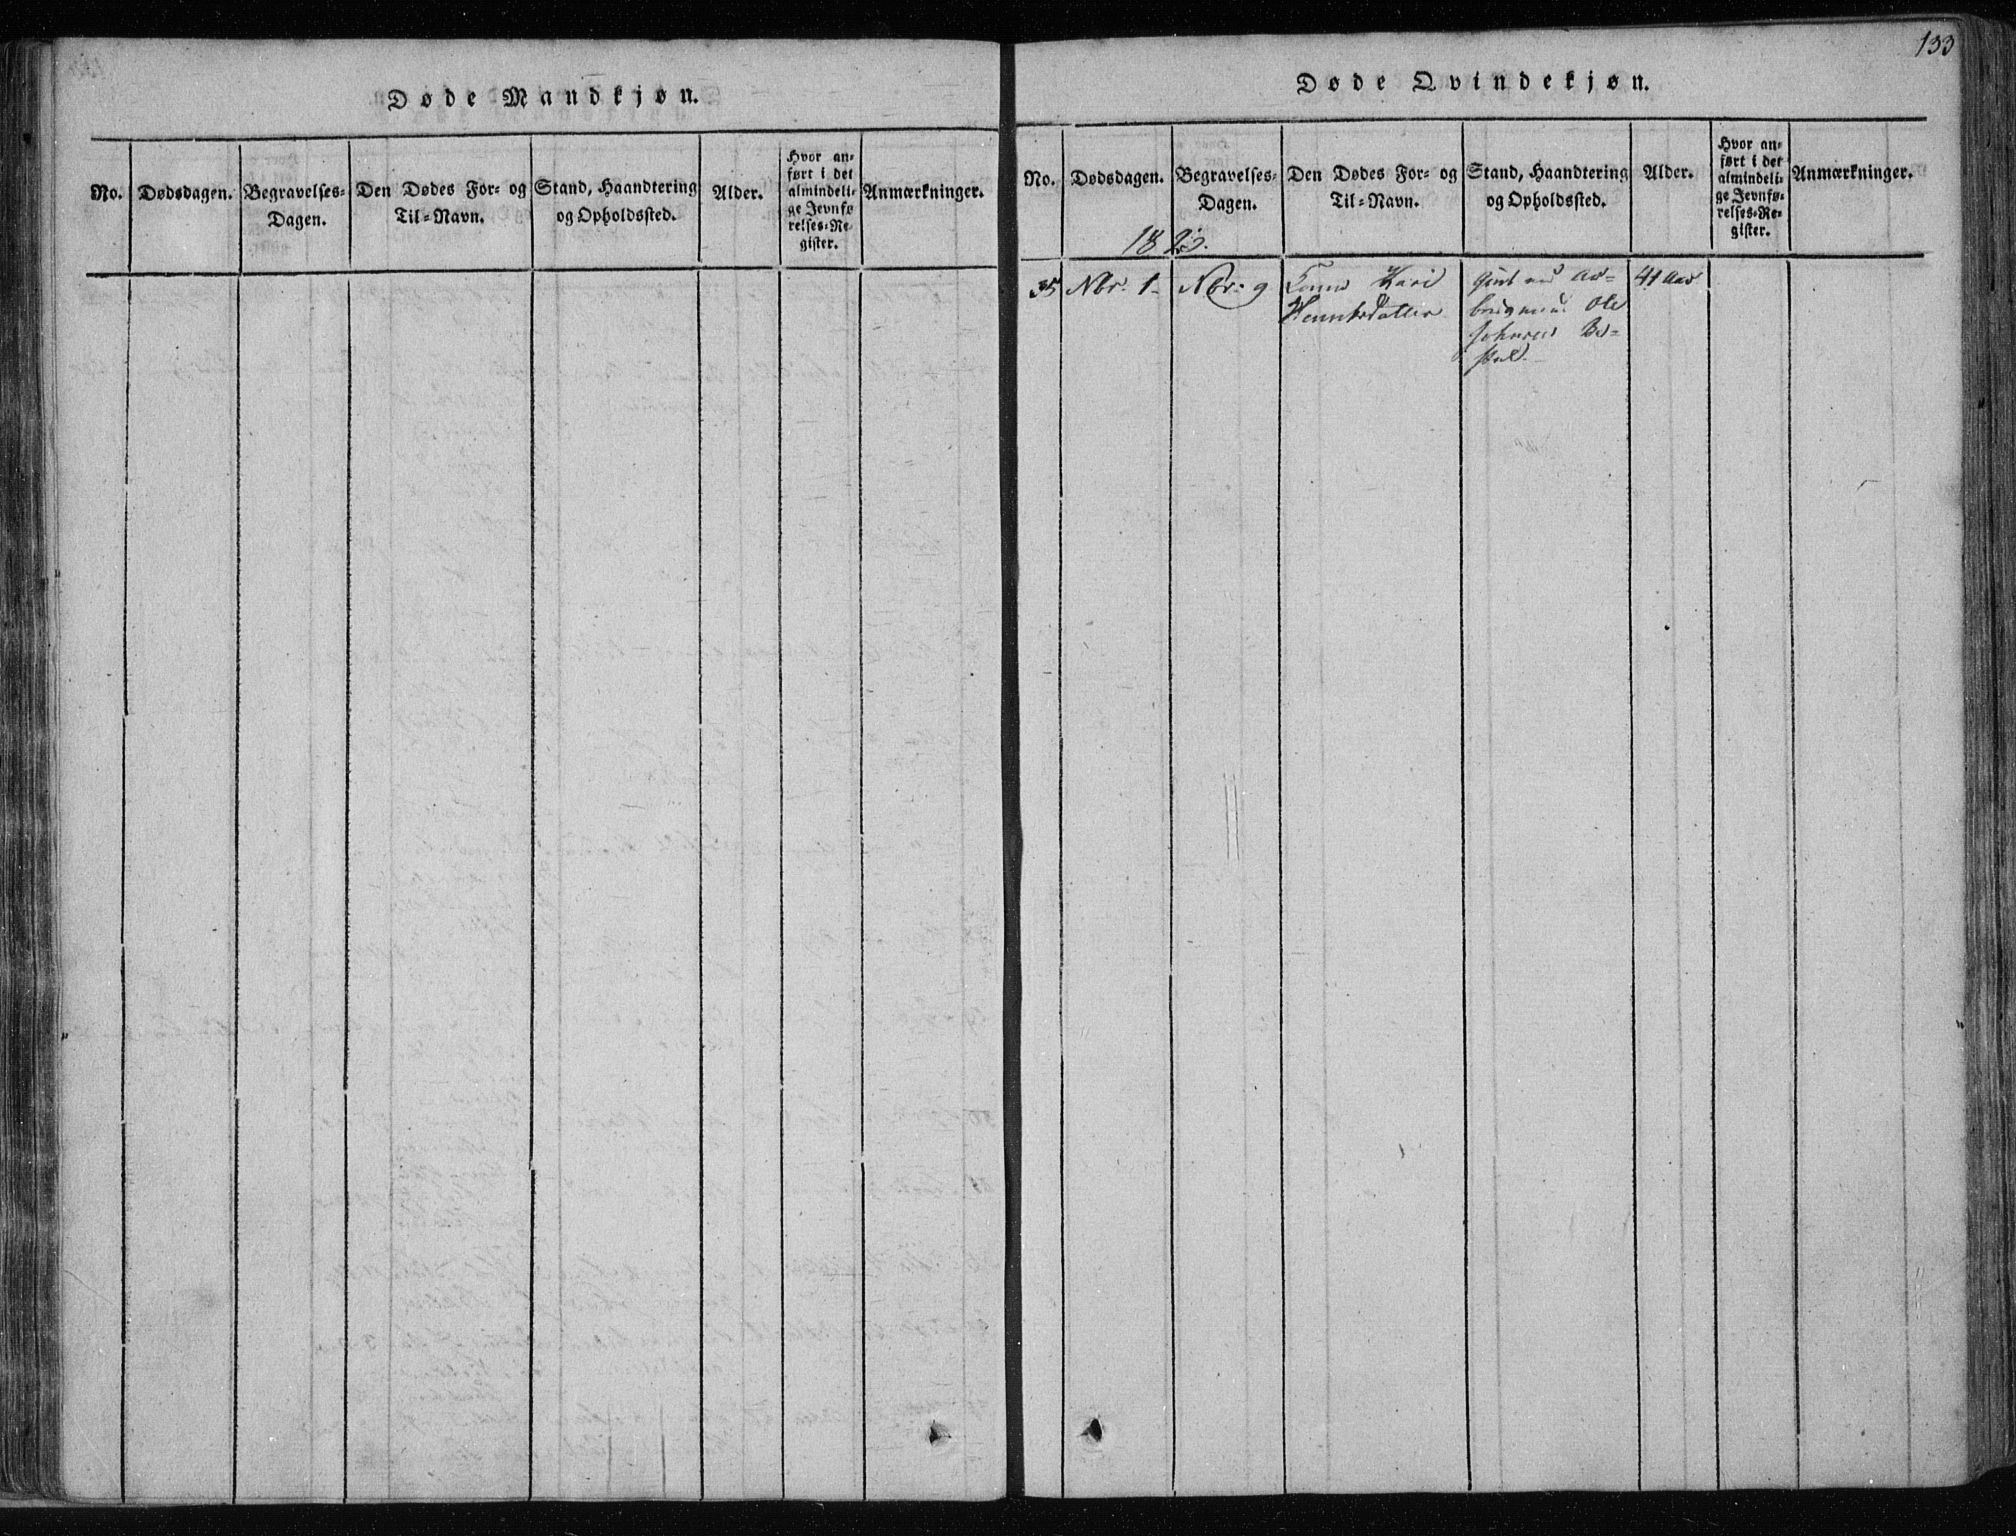 Døde Mandkjøn.
No.
Dødsdagen.
Begravelses-
Dagen.
Den Dødes For- og
Til-Navn.
Stand, Haandtering
og Opholdssted.
Alder.
Hvor an-
ført i det
almindeli-
ge Jevnfø
relses-Re-
gister.
Anmærkninger.
133
Døde Qvindekjøn.
No.
Dødsdagen.
Begravelses-
Dagen.
Den Dødes For- og
Til-Navn.
Stand, Haandtering
og Opholdssted.
Alder.
Hvor an-
ført i det
almindeli-
ge Jevnfø-
relses-Re-
gister.
Anmærkninger.
1823.
35 Nbr. 1. Nbr. 9 Kone Kari
Henriksdatter
givt med Ar-
beidsmand Ole
41 Aar